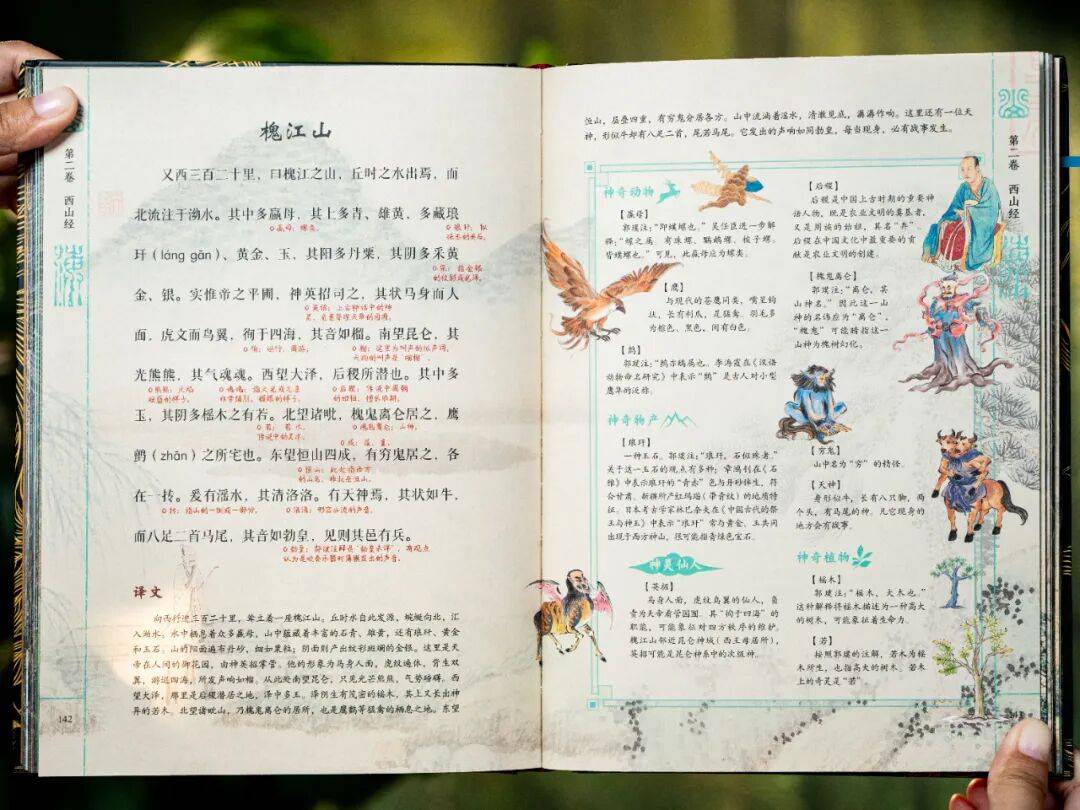 槐江山
又西三百二十里，曰槐江之山，丘时之水出焉，而
北流注于泑水。其中多蠃母，其上多青、雄黄，多藏琅
玕（láng gān）、黄金、玉，其阳多丹粟，其阴多采黄
金、银。实惟帝之平圃，神英招司之，其状马身而人
面，虎文而鸟翼，徇于四海，其音如榴。南望昆仑，其
光熊熊，其气魂魂。西望大泽，后稷所潜也。其中多
玉，其阴多榣木之有若。北望诸毗，槐鬼离仑居之，鹰
鹯（zhān）之所宅也。东望恒山四成，有穷鬼居之，各
在一抟。爰有滛水，其清洛洛。有天神焉，其状如牛，
而八足二首马尾，其音如勃皇，见则其邑有兵。
译文
向西行进三百二十里，耸立着一座槐江山，丘时水自此发源，蜿蜒向北，汇
入泑水。水中栖息着众多蠃母，山中蕴藏着丰富的石青、雄黄，还有琅玕、黄金
和玉石。山的阳面遍布丹砂，细如粟粒；阴面则产出纹彩斑斓的金银。这里是天
帝在人间的御花园，由神英招掌管。他的形象为马身人面，虎纹遍体，背生双
翼，游巡四海，所发声响如榴。从此处南望昆仑，只见光芒熊熊，气势磅礴。西
望大泽，那里是后稷潜居之地，泽中多玉。泽阴生有茂密的榣木，其上又长出神
异的若木。北望诸毗山，乃槐鬼离仑的居所，也是鹰鹯等猛禽的栖息之地。东望
142
第二卷 西山经
恒山，层叠四重，有穷鬼分居各方。山中流淌着滛水，清澈见底，潺潺作响。这里还有一位天
神，形似牛却有八足二首，尾若马尾。它发出的声响如同勃皇，每当现身，必有战事发生。
神奇动物
【蠃母】
郭璞注：“即蜾螺也。”吴任臣进一步解
释：“螺之属，有珠螺、鹦鹉螺、梭子螺，
皆蜾螺也。”可见，此蠃母应为螺类。
【鹰】
与现代的苍鹰同类，嘴呈钩
状，长有利爪，是猛禽。羽毛多
为棕色、黑色，间有白色。
【鹯】
郭璞注：“鹯亦鸱属也。”李海霞在《汉语
动物命名研究》中表示“鹯”是古人对小型
鹰隼的泛称。
神奇物产
【琅玕】
一种玉石。郭璞注：“琅玕，石似珠者。”
关于这一玉石的观点有多种：章鸿钊在《石
雅》中表示琅玕的“青赤”色与丹砂伴生，符
合甘肃、新疆所产红玛瑙（带青纹）的地质特
征。日本考古学家林巳奈夫在《中国古代的祭
玉与神玉》中表示“琅玕”常与黄金、玉共同
出现于西方神山，很可能指青绿色宝石。
神灵仙人
【英招】
马身人面，虎纹鸟翼的仙人，负
责为天帝看管园圃。其“徇于四海”的
职能，可能象征对四方秩序的维护。
槐江山邻近昆仑神域（西王母居所），
英招可能是昆仑神系中的次级神。
【后稷】
后稷是中国上古时期的重要神
话人物，既是农业文明的奠基者，
又是周族的始祖，其名“弃”。
后稷在中国文化中最重要的贡
献是农业文明的创建。
【槐鬼离仑】
郭璞注：“离仑，其
山神名。”因此这一山
神的名讳应为“离仑”，
“槐鬼”可能特指这一
山神为槐树幻化。
【穷鬼】
山中名为“穷”的精怪。
【天神】
身形似牛，长有八只脚，两
个头，有马尾的神。凡它现身的
地方会有战事。
神奇植物
【榣木】
郭璞注：“榣木，大木也。”
这种解释将榣木描述为一种高大
的树木，可能象征着生命力。
【若】
按照郭璞的注解，若木为榣
木所生，也指高大的树木。若木
上的奇灵是“若”
第二卷 西山经